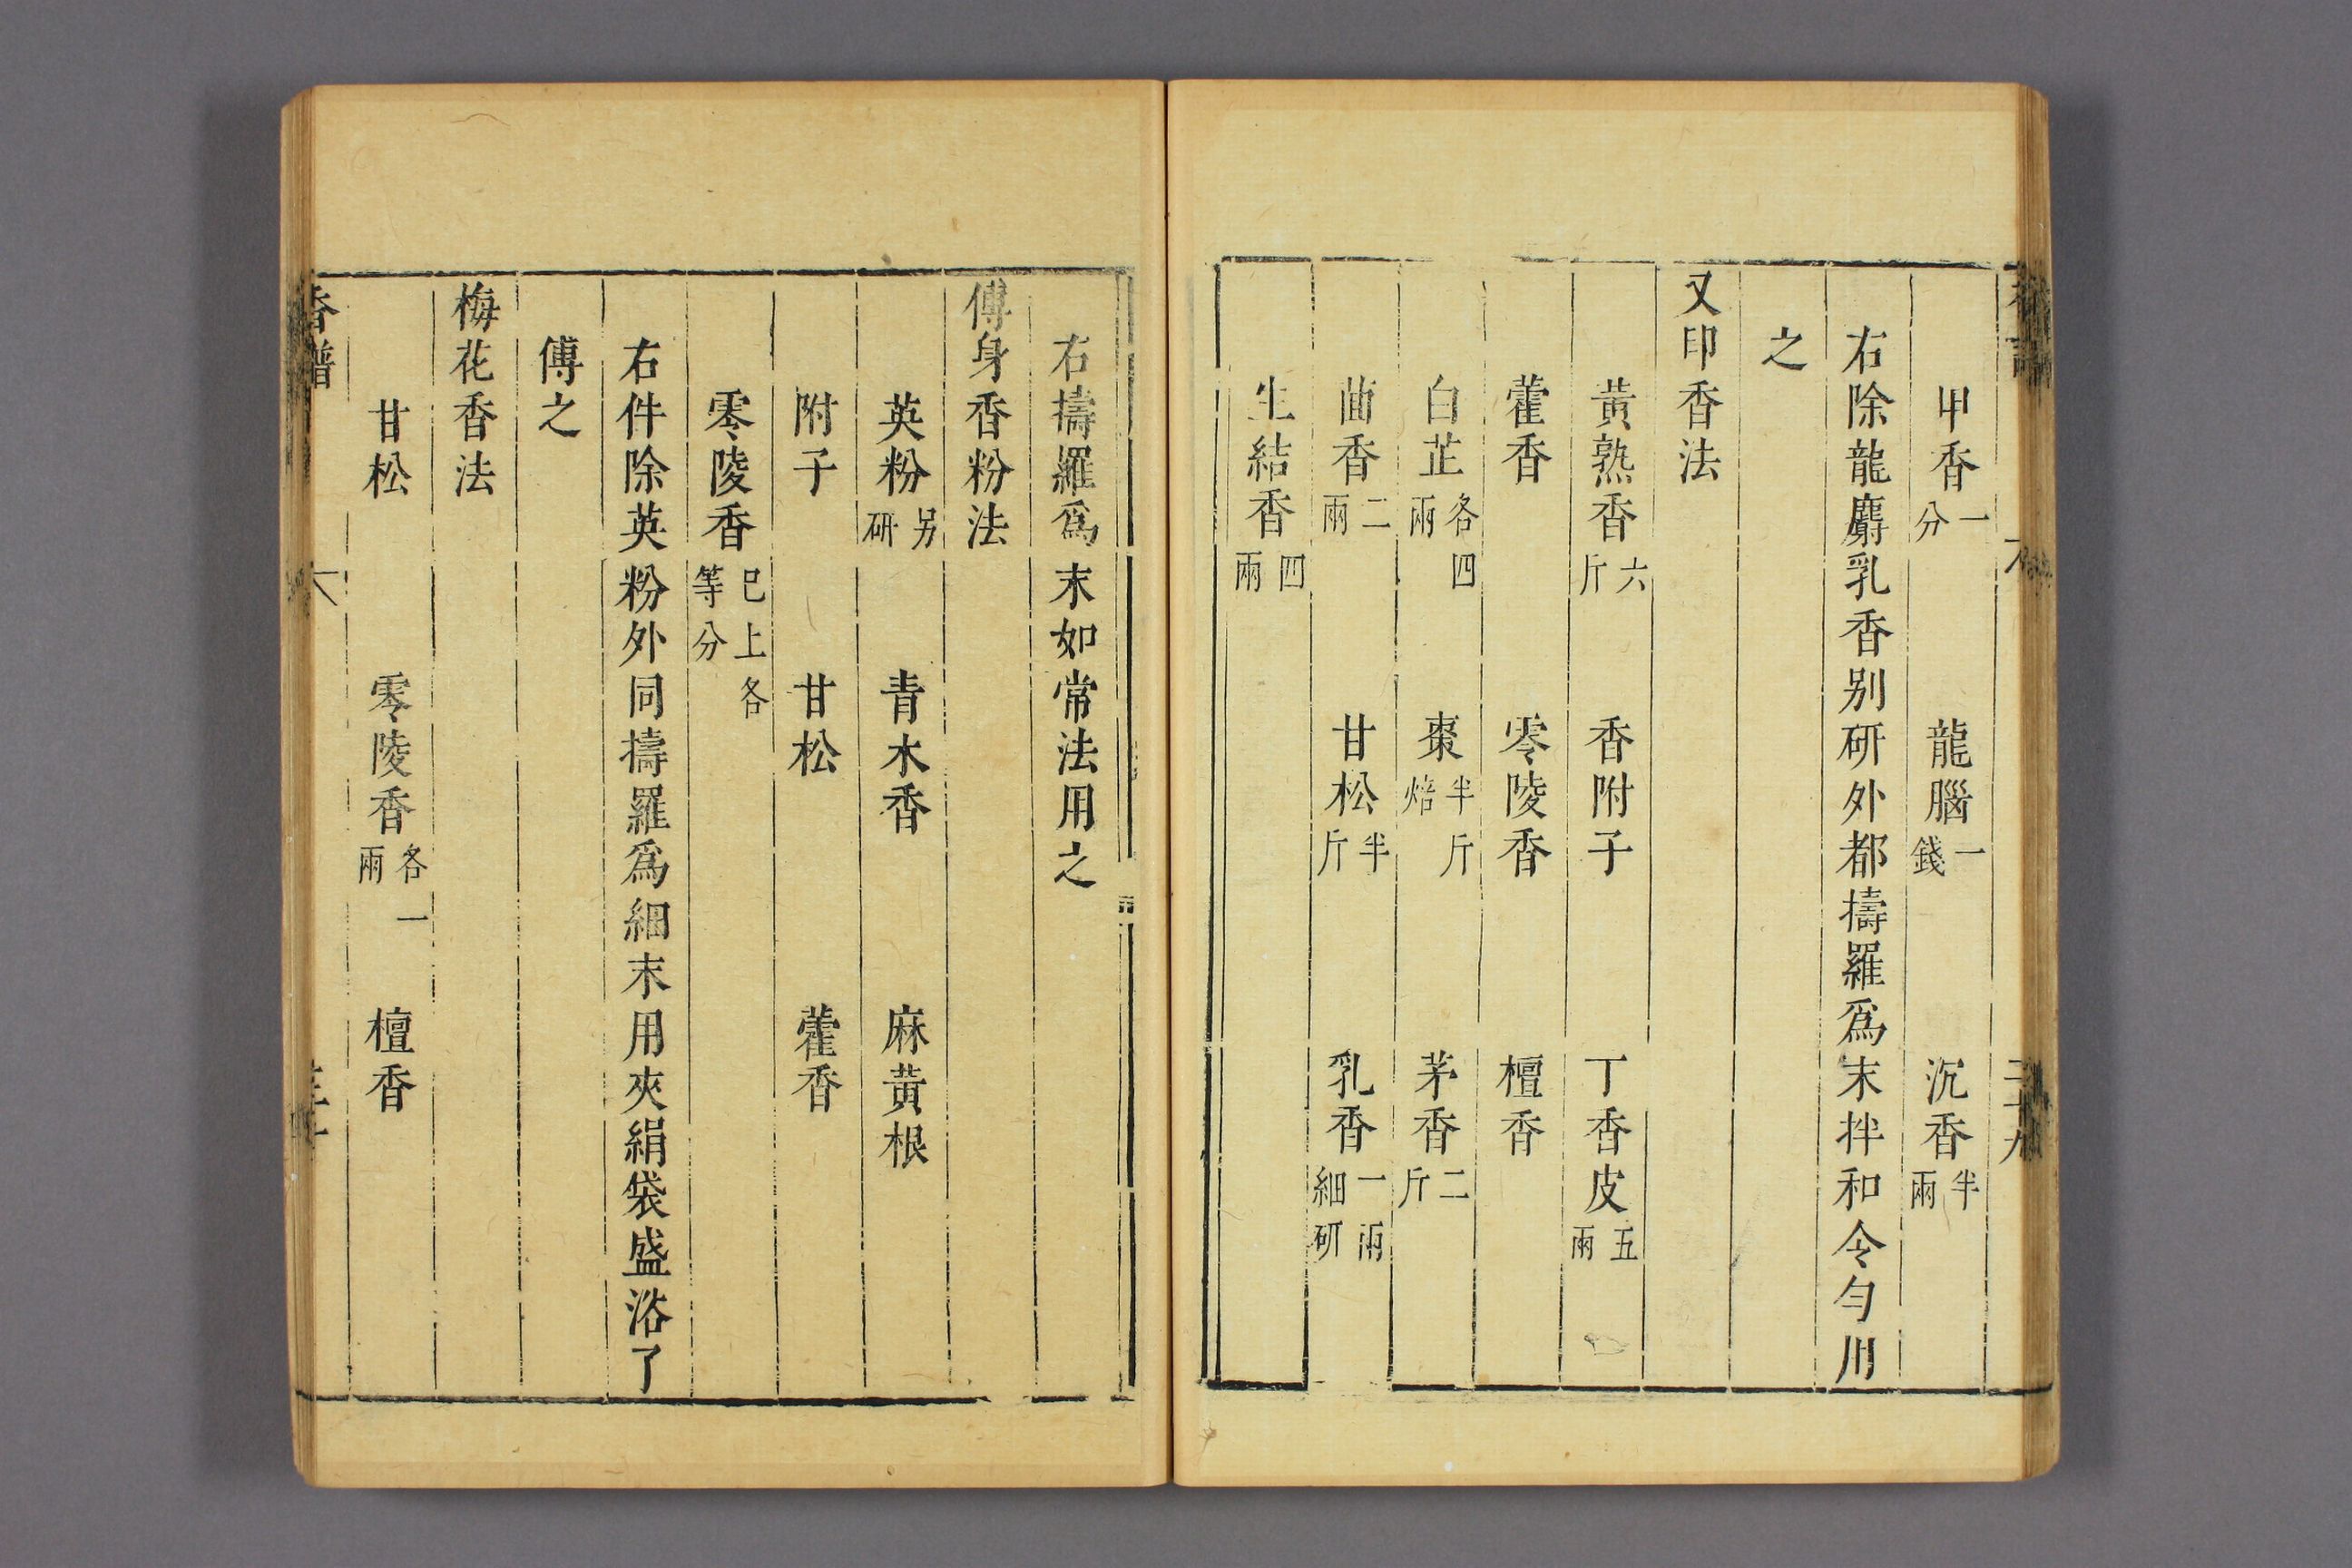 甲香一分 龍腦一錢 沉香半兩
右除龍麝乳香别研外都擣羅爲末拌和令勻用
之
又印香法
黄熟香六斤 香附子 丁香皮五兩
藿香 零陵香 檀香
白芷各四兩 棗半斤焙 茅香二斤
茴香二兩 甘松半斤 乳香一兩細研
生結香四兩
右擣羅爲末如常法用之
傅身香粉法
英粉另研 青木香 麻黄根
附子 甘松 藿香
零陵香已上各等分
右件除英粉外同擣羅爲細末用夾絹袋盛浴了
傅之
梅花香法
甘松 零陵香各一兩 檀香
香譜